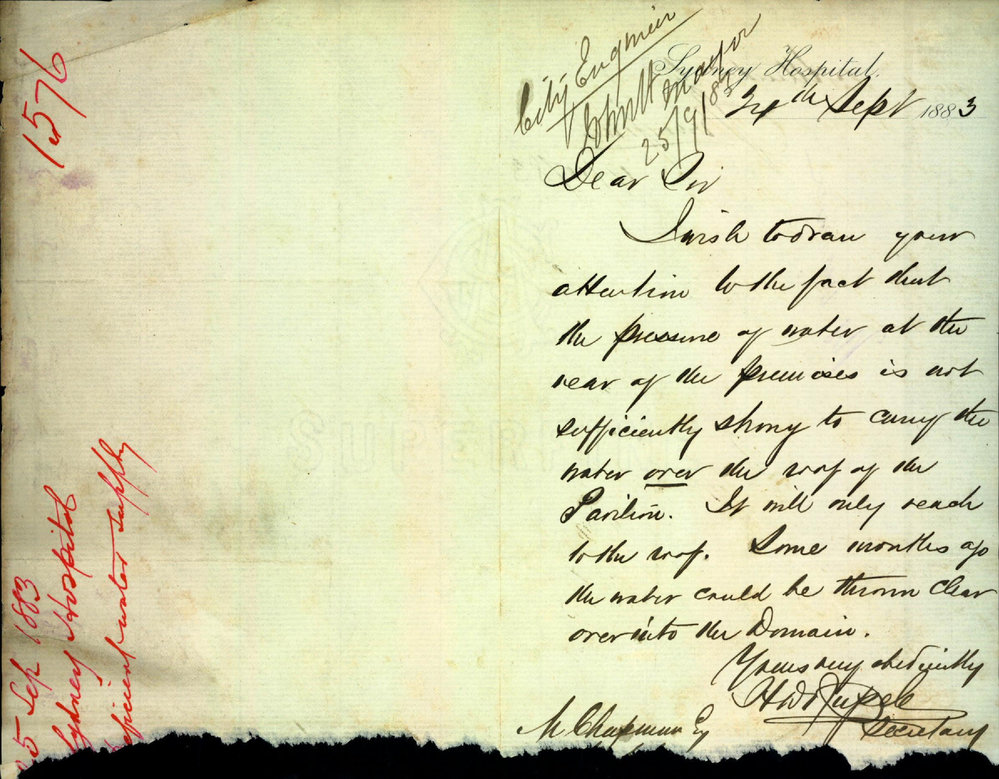 1576
25 Sep 1883
Sydney Hospital
Deficient water supply
City Engineer
Mayor
25/9/83
Sydney Hospital,
24th Sept 1883
Dear Sir
I wish to draw your
attention to the fact that
the pressure of water at the
rear of the premises is not
sufficiently strong to carry the
water over the roof of the
Pavilion. It will only reach
to the roof. Some months ago
the water could be thrown clear
over into the Domain.
Yours very obediently
Secretary
M Chapman Esq